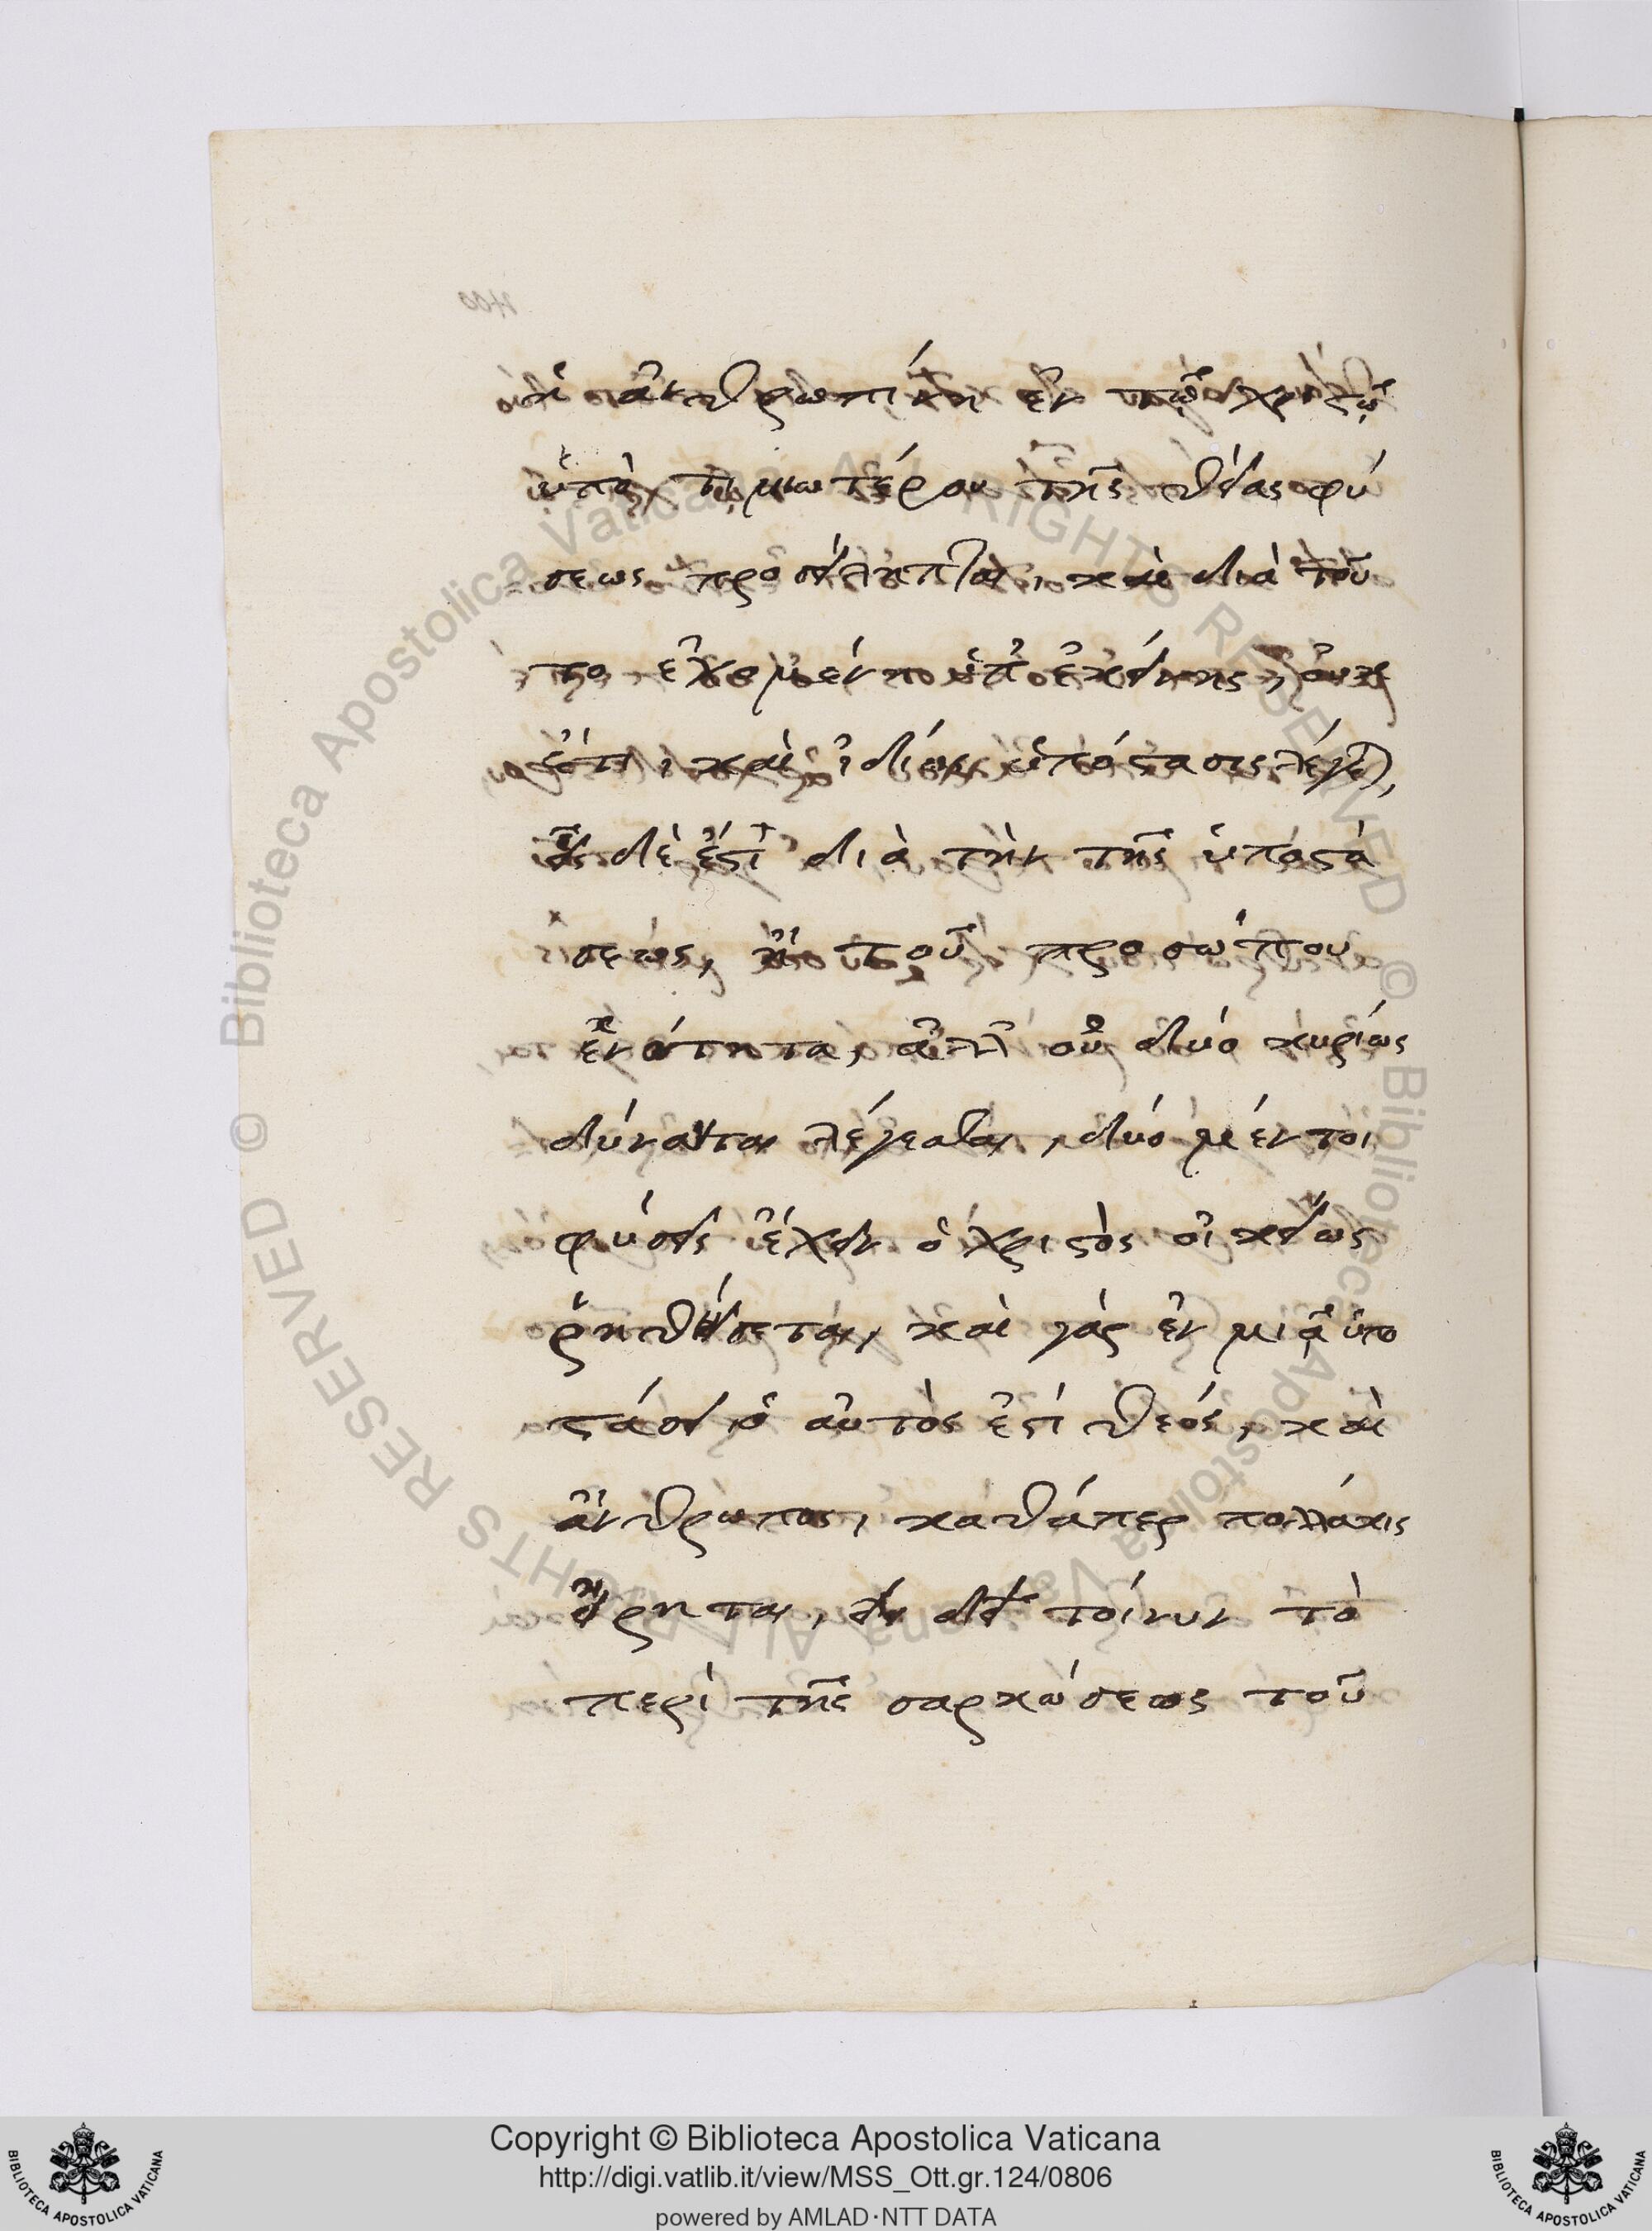 ἡ ἀνθρωπίνη ἐν τῷ χριστῷ
ὑπὸ τιμιωτέρου τῆς θείας φύ
σεως προσείληπται, καὶ διὰ τοῦ
το ἐχομένη ὑπ' ἐκείνης, οὐκ
ἔτι καὶ ἰδίως ὑπόστασις λέγει,
εἷς δέ ἐστι διὰ τὴν τῆς ὑποστά
σεως, ἢ τοῦ προσώπου
ἑνότητα, ἀλλ' οὐ δύο κυρίως
δύναται λέγεσθαι, δύο μέντοι
φύσεις ἔχειν ὁ χριστὸς οἰκείως
ῥηθήσεται, καὶ γὰρ ἐν μιᾷ ὑπο
στάσει ὁ αὐτὸς ἐστὶ θεός, καὶ
ἄνθρωπος, καθάπερ πολλάκις
εἴρηται, εἰ δεῖ τοίνυν τὸ
περὶ τῆς σαρκώσεως τοῦ
Copyright © Biblioteca Apostolica Vaticana
http://digi.vatlib.it/view/MSS_Ott.gr.124/0806
powered by AMLAD·NTT DATA
BIBLIOTECA APOSTOLICA VATICANA
BIBLIOTECA APOSTOLICA VATICANA
© Biblioteca Apostolica Vaticana ALL RIGHTS RESERVED © Biblioteca Apostolica Vaticana ALL RIGHTS RESERVED